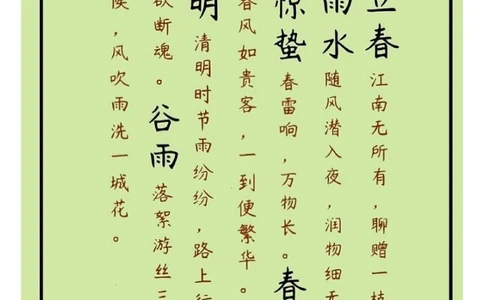 立春 江南无所有，聊赠一枝
雨水 随风潜入夜，润物细无
惊蛰 春雷响，万物长。春
春风如贵客，一到便繁华。
明 清明时节雨纷纷，路上行
欲断魂。谷雨 落絮游丝三
候，风吹雨洗一城花。